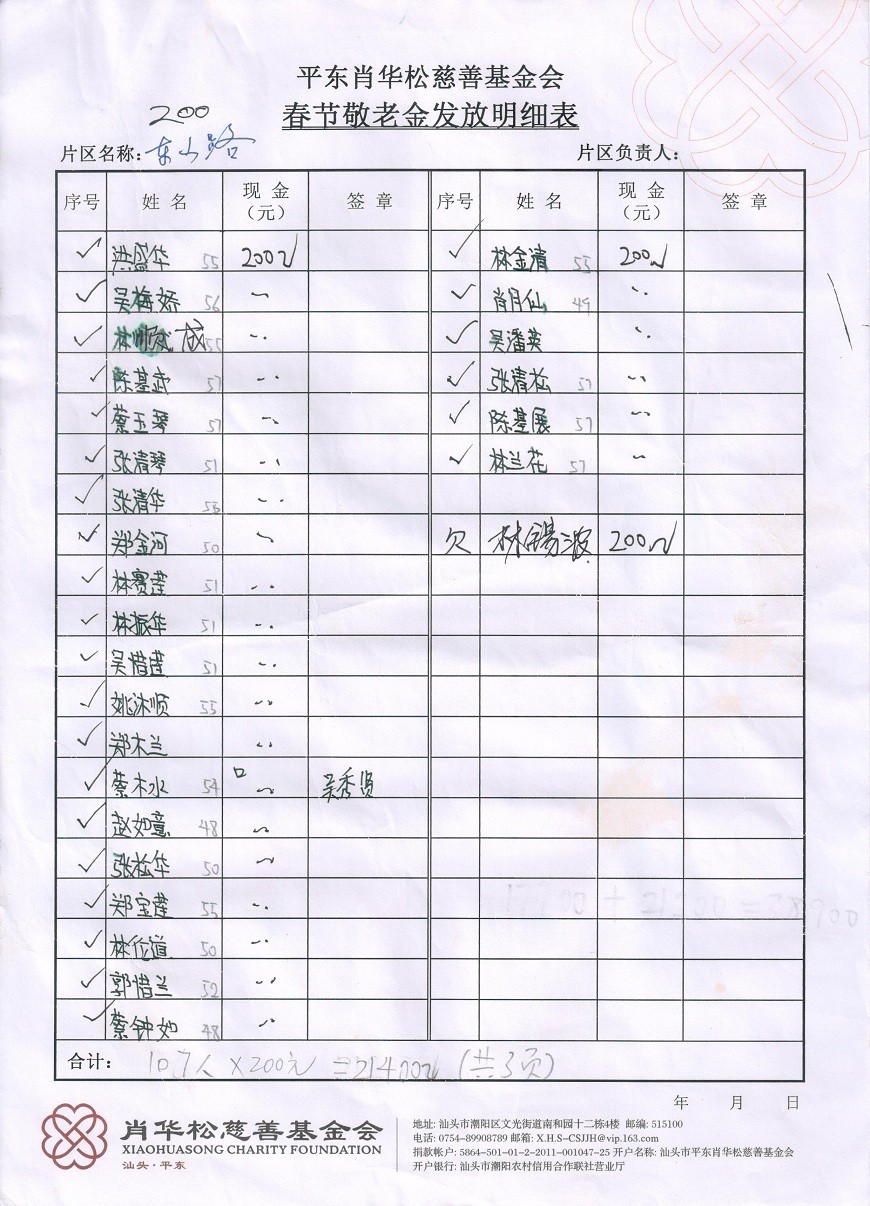 平东肖华松慈善基金会
200
春节敬老金发放明细表
片区名称：东山路 片区负责人：
序号 姓名 现金（元） 签章 序号 姓名 现金（元） 签章
✓ 洪盛华 55 200元 ✓ 林金清 55 200元
✓ 吴梅娇 56 〃 ✓ 肖月仙 49 〃
✓ 林顺成 成 55 〃 ✓ 吴潘英 〃
✓ 陈基武 57 〃 ✓ 张清松 57 〃
✓ 蔡玉琴 57 〃 ✓ 陈基展 57 〃
✓ 张清琴 57 〃 ✓ 林兰花 57 〃
✓ 张清华 55 〃
✓ 郑金河 50 〃 欠 林锡波 200元
✓ 林赛莲 51 〃
✓ 林振华 51 〃
✓ 吴惜莲 51 〃
✓ 姚沐顺 55 〃
✓ 郑木兰 〃
✓ 蔡木水 54 〃 吴秀贤
✓ 赵如意 48 〃
✓ 张松华 50 〃
✓ 郑宝莲 55 〃
17700 + 21200 = 38900
✓ 林位道 50 〃
✓ 郭惜兰 52 〃
✓ 蔡钟如 48 〃
合计： 107人 ×200元 =21400元 (共3页)
年 月 日
肖华松慈善基金会
XIAOHUASONG CHARITY FOUNDATION
汕头·平东
地址: 汕头市潮阳区文光街道南和园十二栋4楼 邮编: 515100
电话: 0754-89908789 邮箱: X.H.S-CSJJH@vip.163.com
捐款帐户: 5864-501-01-2-2011-001047-25 开户名称: 汕头市平东肖华松慈善基金会
开户银行: 汕头市潮阳农村信用合作联社营业厅